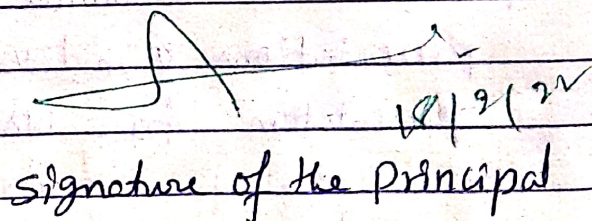 18/2/22
Signature of the Principal